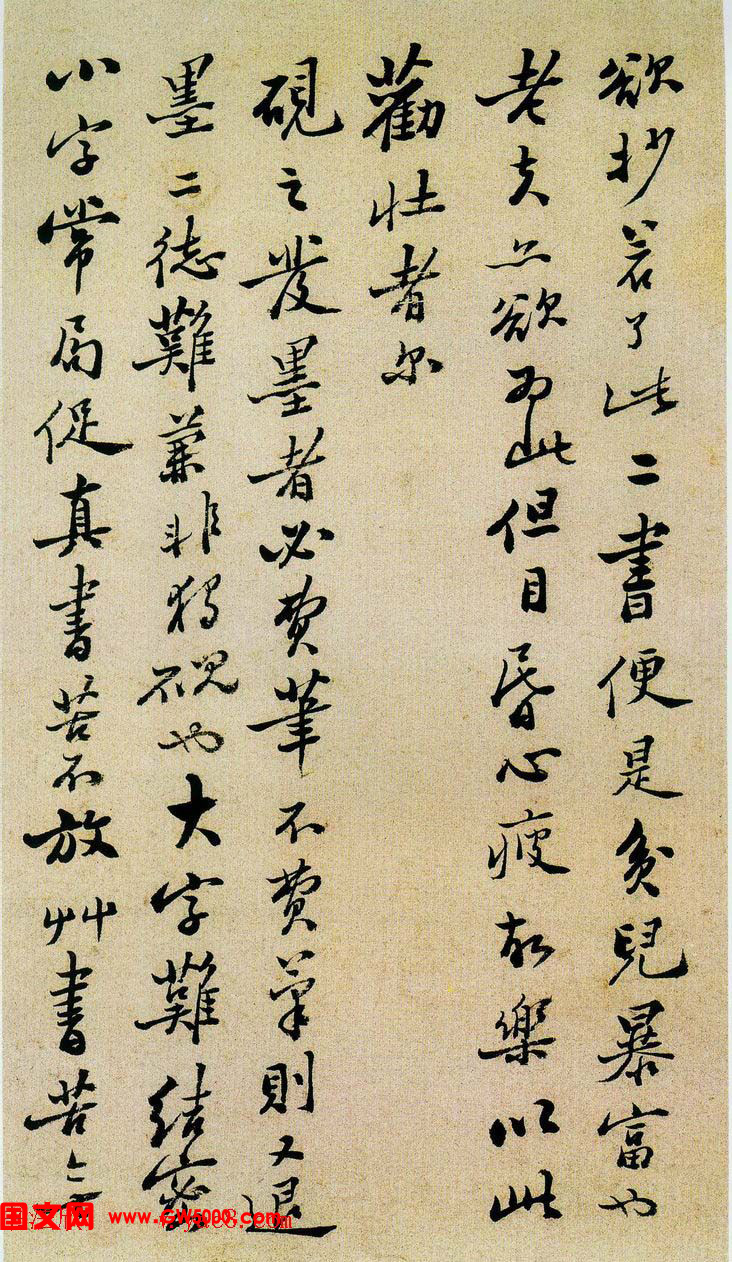 欲抄若了此二書便是貧兒暴富也
老夫亦欲為此但目昏心疲故樂以此
勸壯者尔
硯之發墨者必費筆不費筆則又退
墨二德難兼非獨硯也大字難結密
小字常局促真書苦不放艸書苦無
国文网 www.GW5000.com